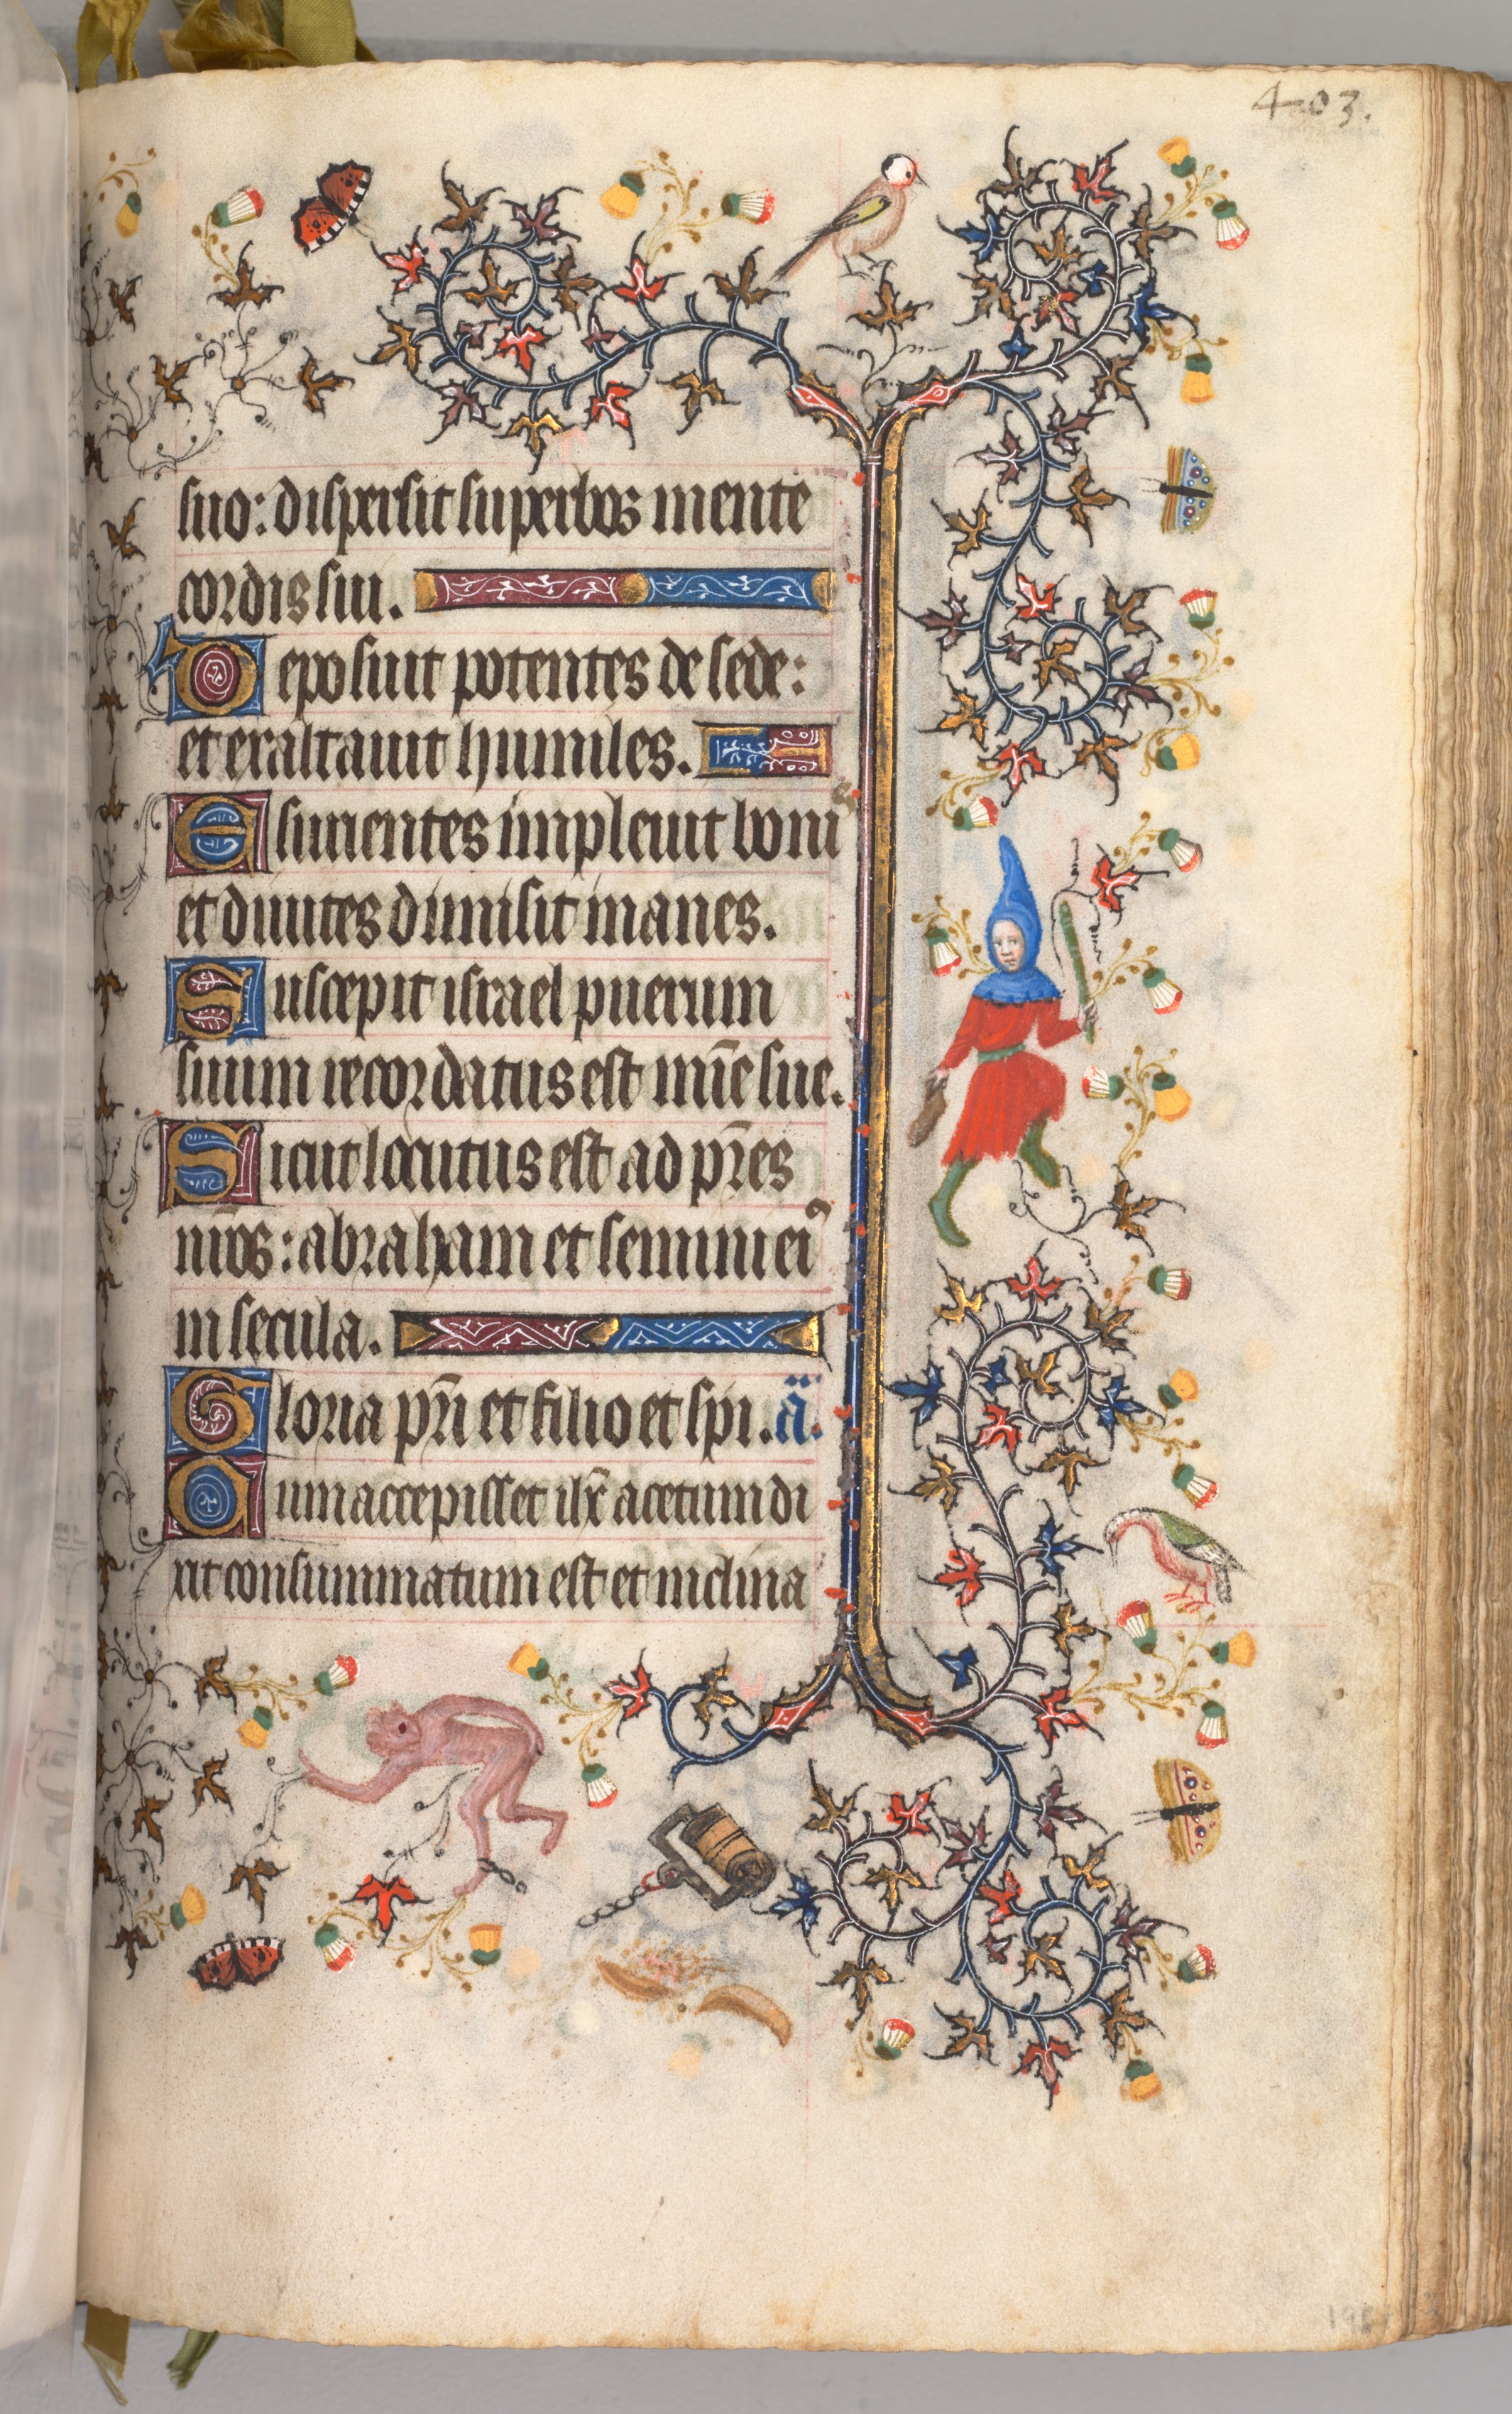 403.
suo: dispersit superbos mente
cordis sui.
Deposuit potentes de sede:
et exaltauit humiles.
Esurientes impleuit boni⁹
et diuites dimisit inanes.
Suscepit israel puerum
suum recordatus est mīe sue.
Sicut locutus est ad pr̄es
nr̄os: abraham et semini ei⁹
in secula.
Gloria pr̄i et filio et spi. a.
Cum accepisset ih̄c acetum di
xit consummatum est et inclina